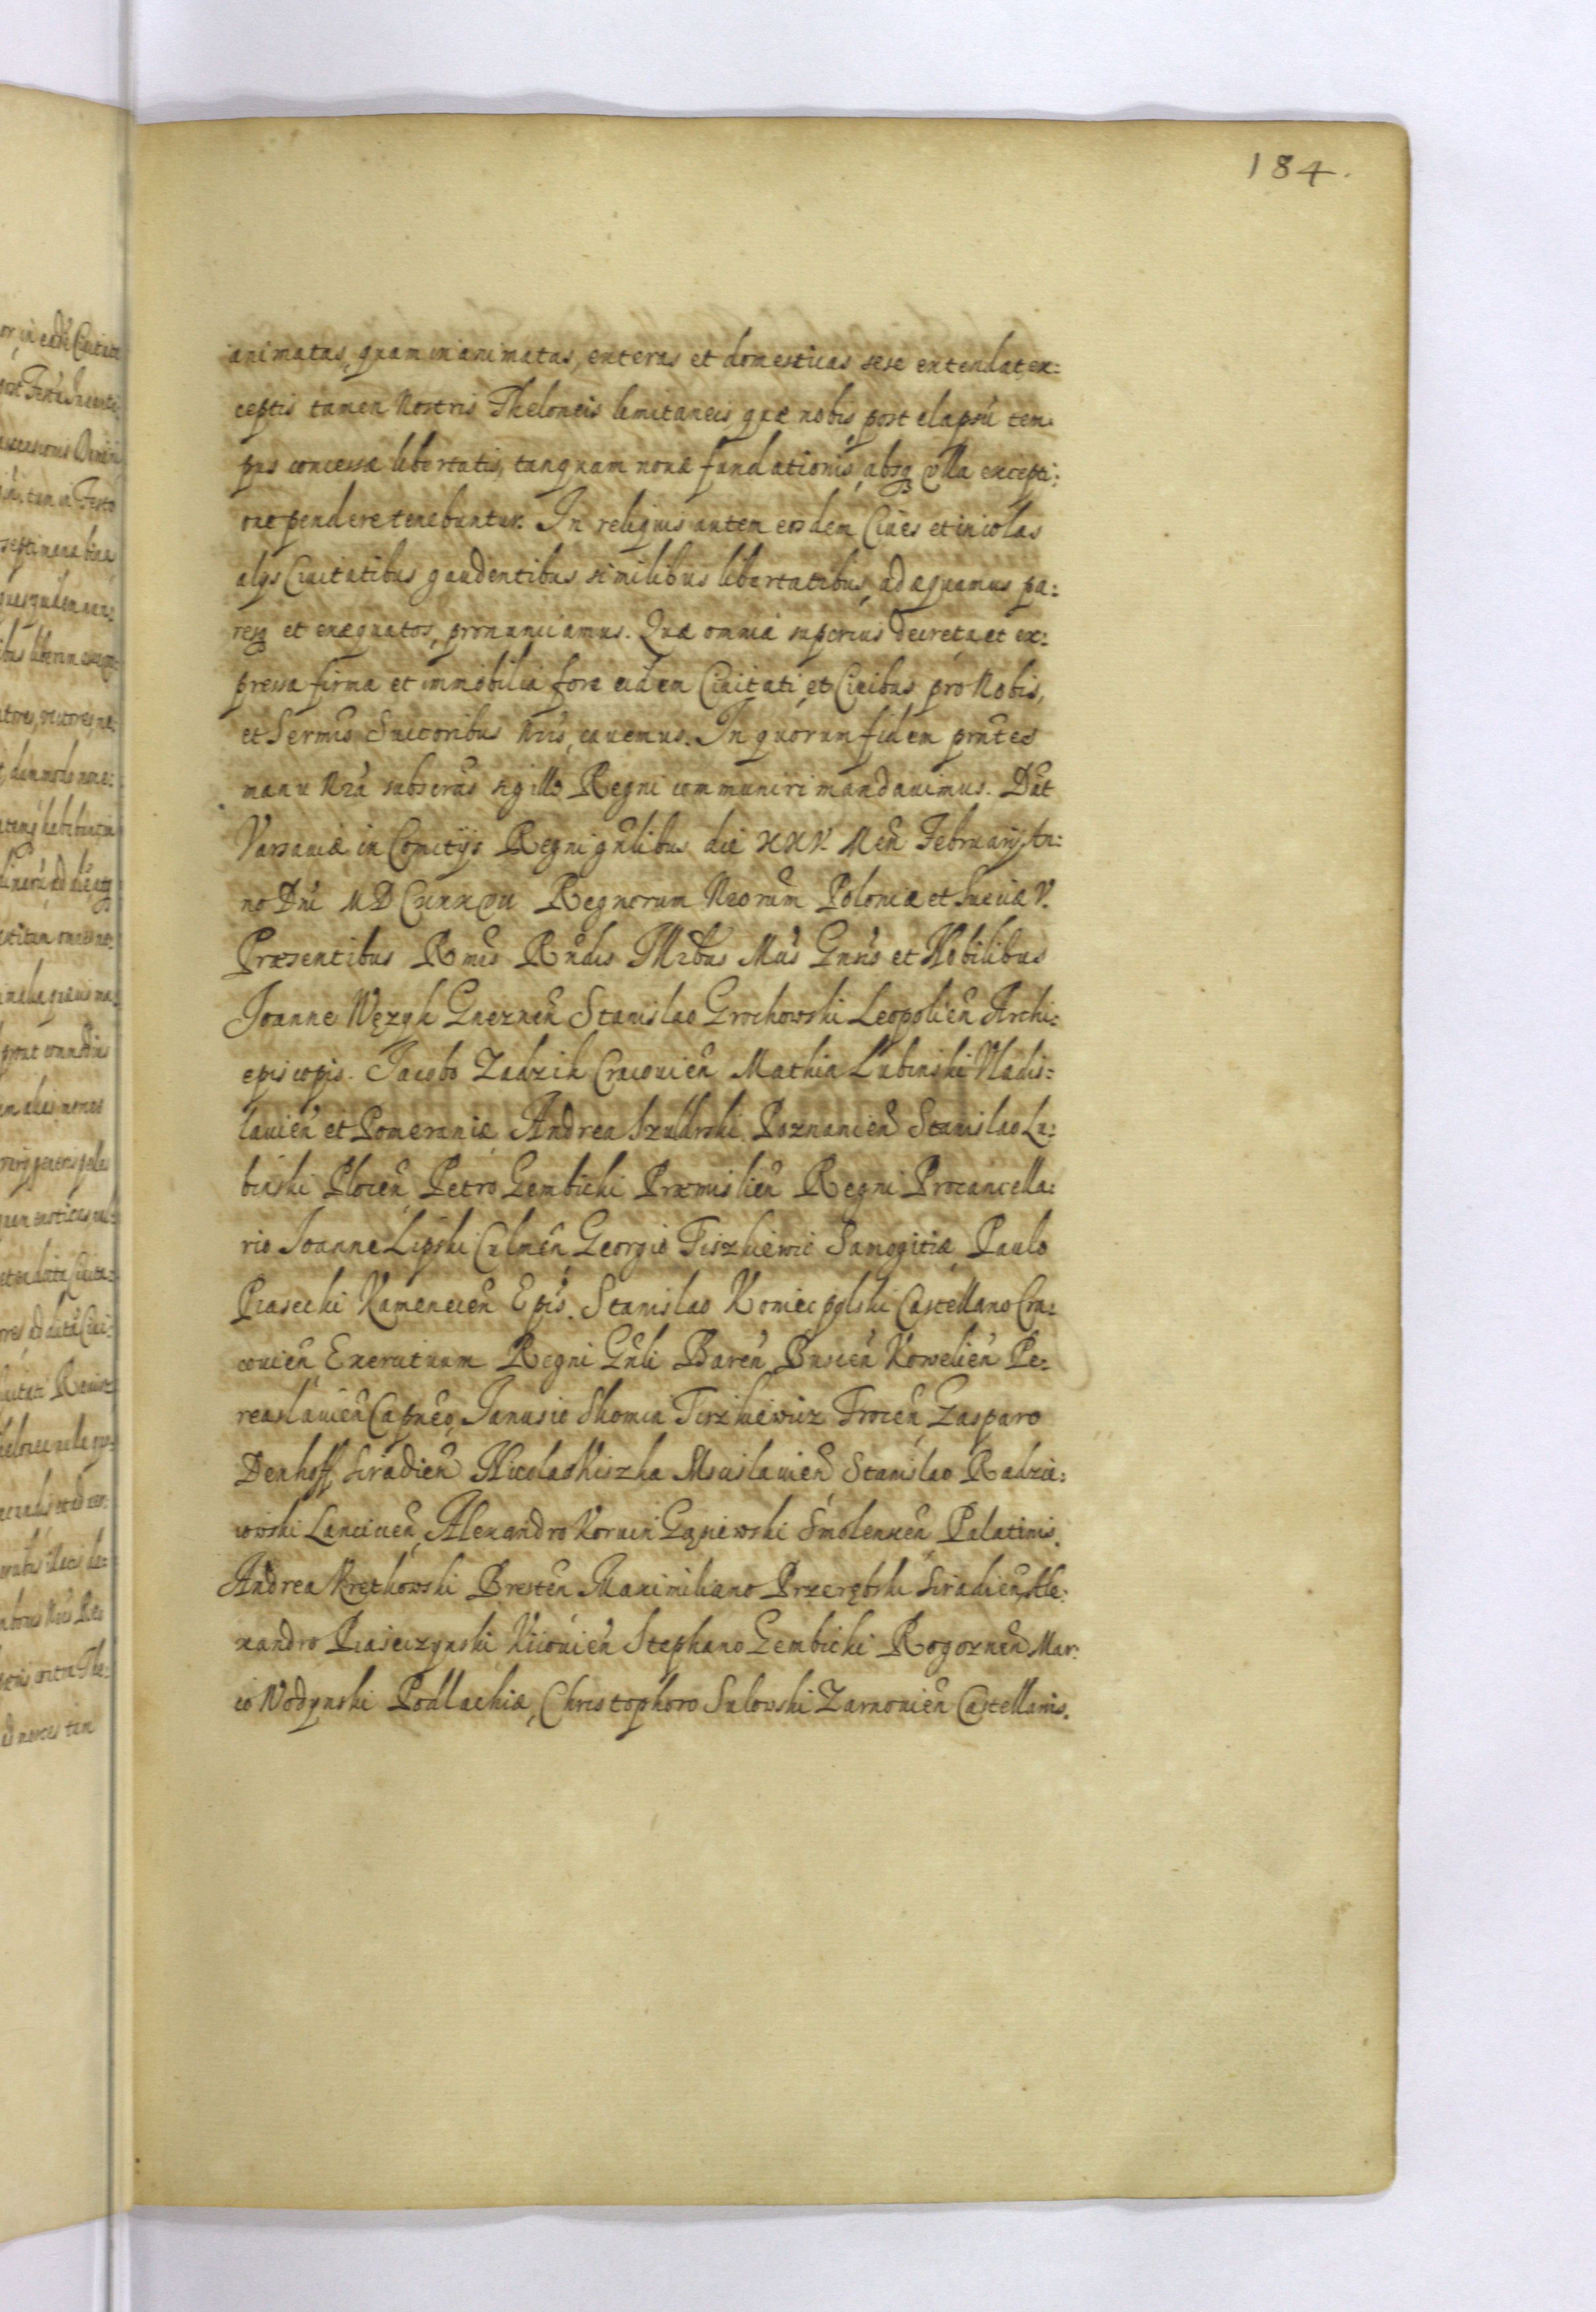 184.
animatas, quam inanimatas, exteras et domesticas sese extendat, ex:
ceptis tamen Nostris Theloneis limitaneis, quæ nobis post elapsũ tem:
pus concessæ libertatis, tanquam nouæ fundationis, absq vlla excepti:
one pendere tenebuntur. In reliquis autem eosdem Ciues et incolas
alys Ciuitatibus gaudentibus similibus libertatibus, adæquamus pa:
resq et exæquatos, pronunciamus. Quæ omnia superius decreta, et ex:
pressa firma et immobilia fore eidem Ciuitati, et Ciuibus pro Nobis,
et Sermis Succoribus Nris, cauemus. In quorum fidem prntes
manu Nra subscras sigillo Regni communiri mandauimus. Dat
Varsauiæ in Comitijs Regni gnlibus die XXV. Men Februarij, An:
no Dni MDCXXXVII Regnorum Nrorum Poloniæ et Sueciæ V.
Præsentibus Rmis Rndis Illrbus Mcis Gnsis et Nobilibus
Joanne Wężyk Gneznen Stanislao Grochowski Leopolien Archi:
episcopis. Jacobo Zadzik Cracouien Mathia Lubinski Vladis:
lauien et Pomeraniæ Andrea Szuldrski Poznanien Stanislao Lu:
binski Plocen Petro Gembicki Præmislien Regni Procancella:
rio Joanne Lipski Culmen, Georgio Tiszkiewic Samogitiæ, Paulo
Piasecki Kamenecen Epis. Stanislao Koniecpolski Castellano Cra:
couien Exercituum Regni Gnli Baren Buscen Kowelien Pe:
reaslauien Capneo, Janusio Skomin Tiszkiewicz Trocen, Gasparo
Denhoff Siradien Nicolao Kiszka Mscislauien, Stanislao Radzie:
iowski Lancicien, Alexandro Koruin Gąsiewski Smolensen, Palatinis.
Andrea Kretkowski Bresten Maximiliano Przerębski Siradien, Ale:
xandro Piaseczynski Kiiouien Stephano Gembicki Rogoznen, Mar:
co Wodynski Podlachiæ, Christophoro Sulowski Zarnouien Castellanis.